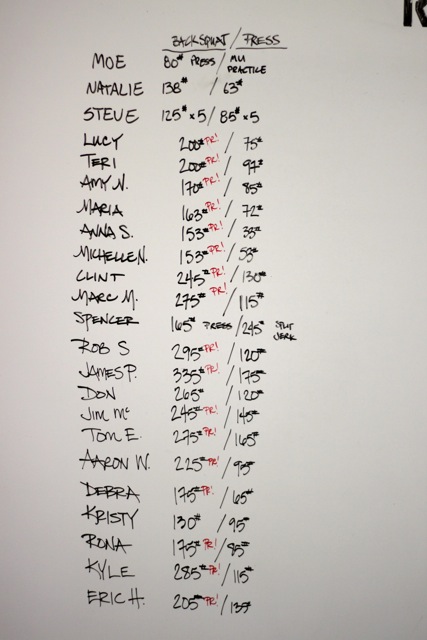 BACKSQUAT / PRESS
MOE 80# PRESS / MU PRACTICE
NATALIE 138# / 63#
STEVE 125# x 5 / 85# x 5
LUCY 200# PR! / 75#
TERI 200# PR! / 97#
AMY N. 170# PR! / 85#
MARIA 163# PR! / 72#
ANNA S. 153# PR! / 33#
MICHELLE N. 153# PR! / 53#
CLINT 245# PR! / 130#
MARC M. 275# PR! / 115#
SPENCER 165# PRESS / 245# SPLIT JERK
ROB S 295# PR! / 120#
JAMES P. 335# PR! / 175#
DON 265# / 120#
JIM Mc 245# PR! / 145#
TOM E. 275# PR! / 165#
AARON W. 225# PR! / 95#
DEBRA 175# PR! / 65#
KRISTY 130# / 95#
RONA 175# PR! / 85#
KYLE 285# PR! / 115#
ERIC H. 205# PR! / 135#